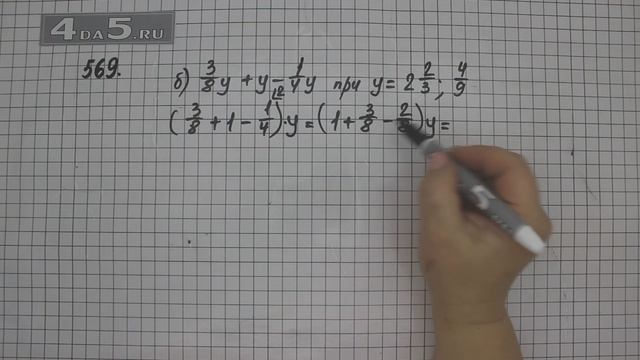 4DA5.RU
569.
б) 3/8 y + y - 1/4 y при y = 2 2/3; 4/9
(3/8 + 1 - 1/4)·y = (1 + 3/8 - 2/8) y =